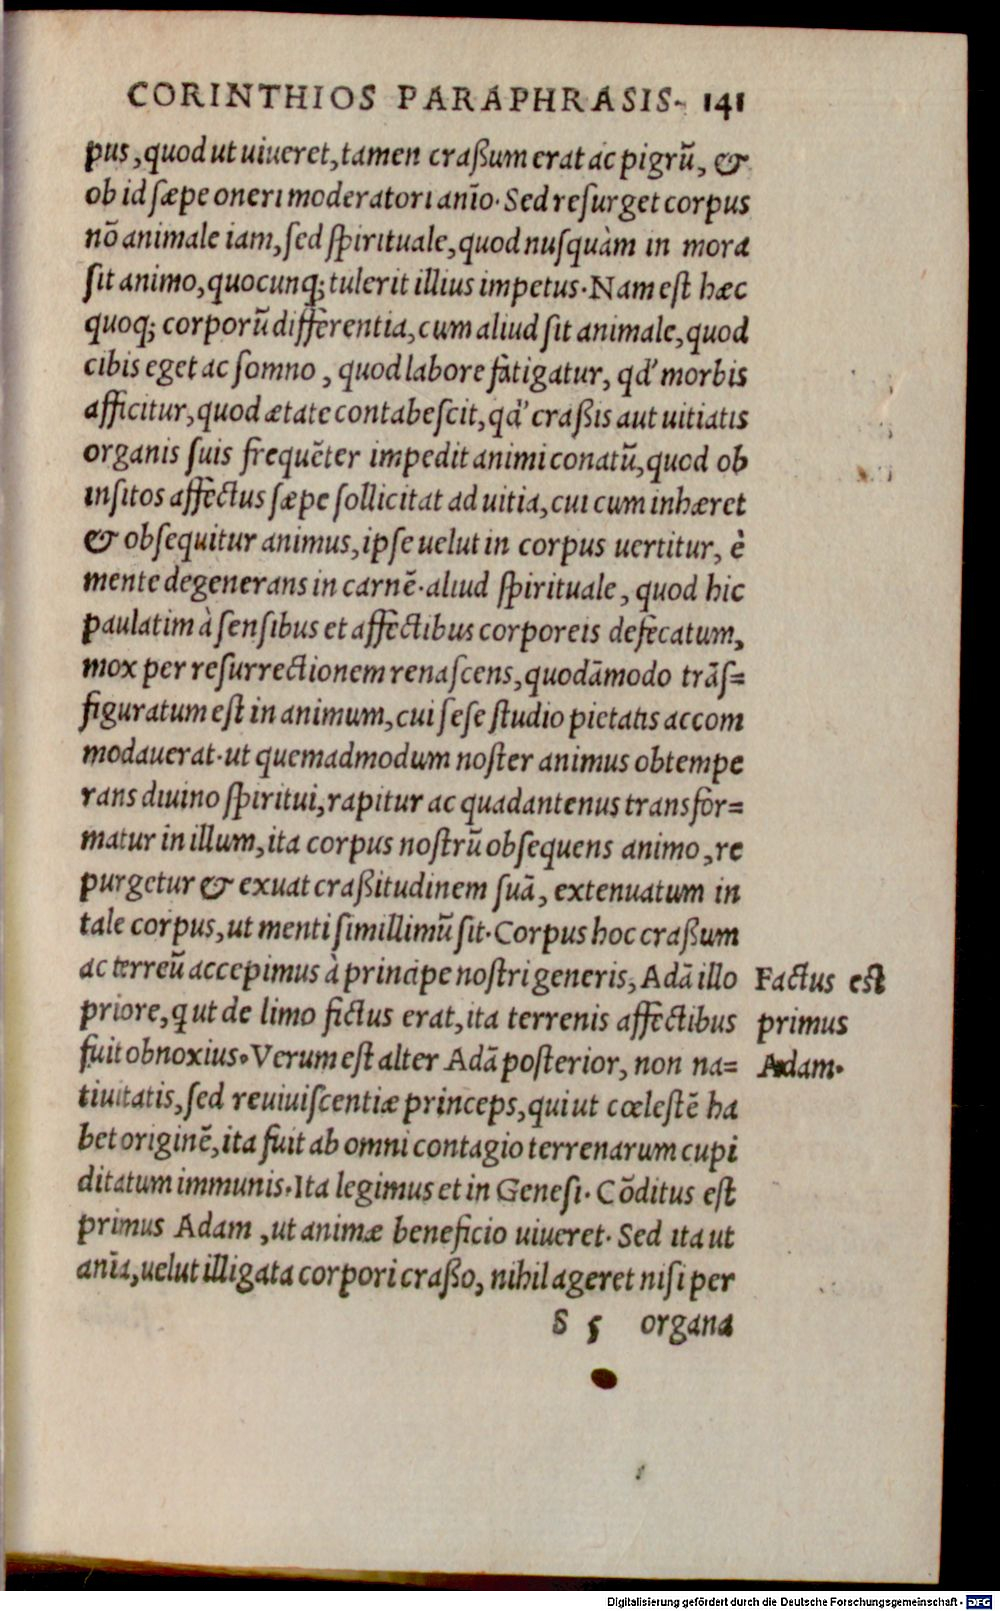 CORINTHIOS PARAPHRASIS. 141
pus, quod ut uiueret, tamen craßum erat ac pigrū, &
ob id sæpe oneri moderatori anīo. Sed resurget corpus
nō animale iam, sed spirituale, quod nusquàm in mora
sit animo, quocunq; tulerit illius impetus. Nam est hæc
quoq; corporū differentia, cum aliud sit animale, quod
cibis eget ac somno, quod labore fatigatur, qd' morbis
afficitur, quod ætate contabescit, qd' craßis aut uitiatis
organis suis frequēter impedit animi conatū, quod ob
insitos affectus sæpe sollicitat ad uitia, cui cum inhæret
& obsequitur animus, ipse uelut in corpus uertitur, è
mente degenerans in carnē. aliud spirituale, quod hic
paulatim à sensibus et affectibus corporeis defecatum,
mox per resurrectionem renascens, quodāmodo trās=
figuratum est in animum, cui sese studio pietatis accom
modauerat. ut quemadmodum noster animus obtempe
rans diuino spiritui, rapitur ac quadantenus transfor=
matur in illum, ita corpus nostrū obsequens animo, re
purgetur & exuat craßitudinem suā, extenuatum in
tale corpus, ut menti simillimū sit. Corpus hoc craßum
ac terreū accepimus à principe nostri generis, Adā illo
priore, q ut de limo fictus erat, ita terrenis affectibus
fuit obnoxius. Verum est alter Adā posterior, non na=
tiuitatis, sed reuiuiscentiæ princeps, qui ut cœlestē ha
bet originē, ita fuit ab omni contagio terrenarum cupi
ditatum immunis. Ita legimus et in Genesi. Cōditus est
primus Adam, ut animæ beneficio uiueret. Sed ita ut
anīa, uelut illigata corpori craßo, nihil ageret nisi per
S 5 organa
Factus est
primus
Adam.
Digitalisierung gefördert durch die Deutsche Forschungsgemeinschaft - DFG